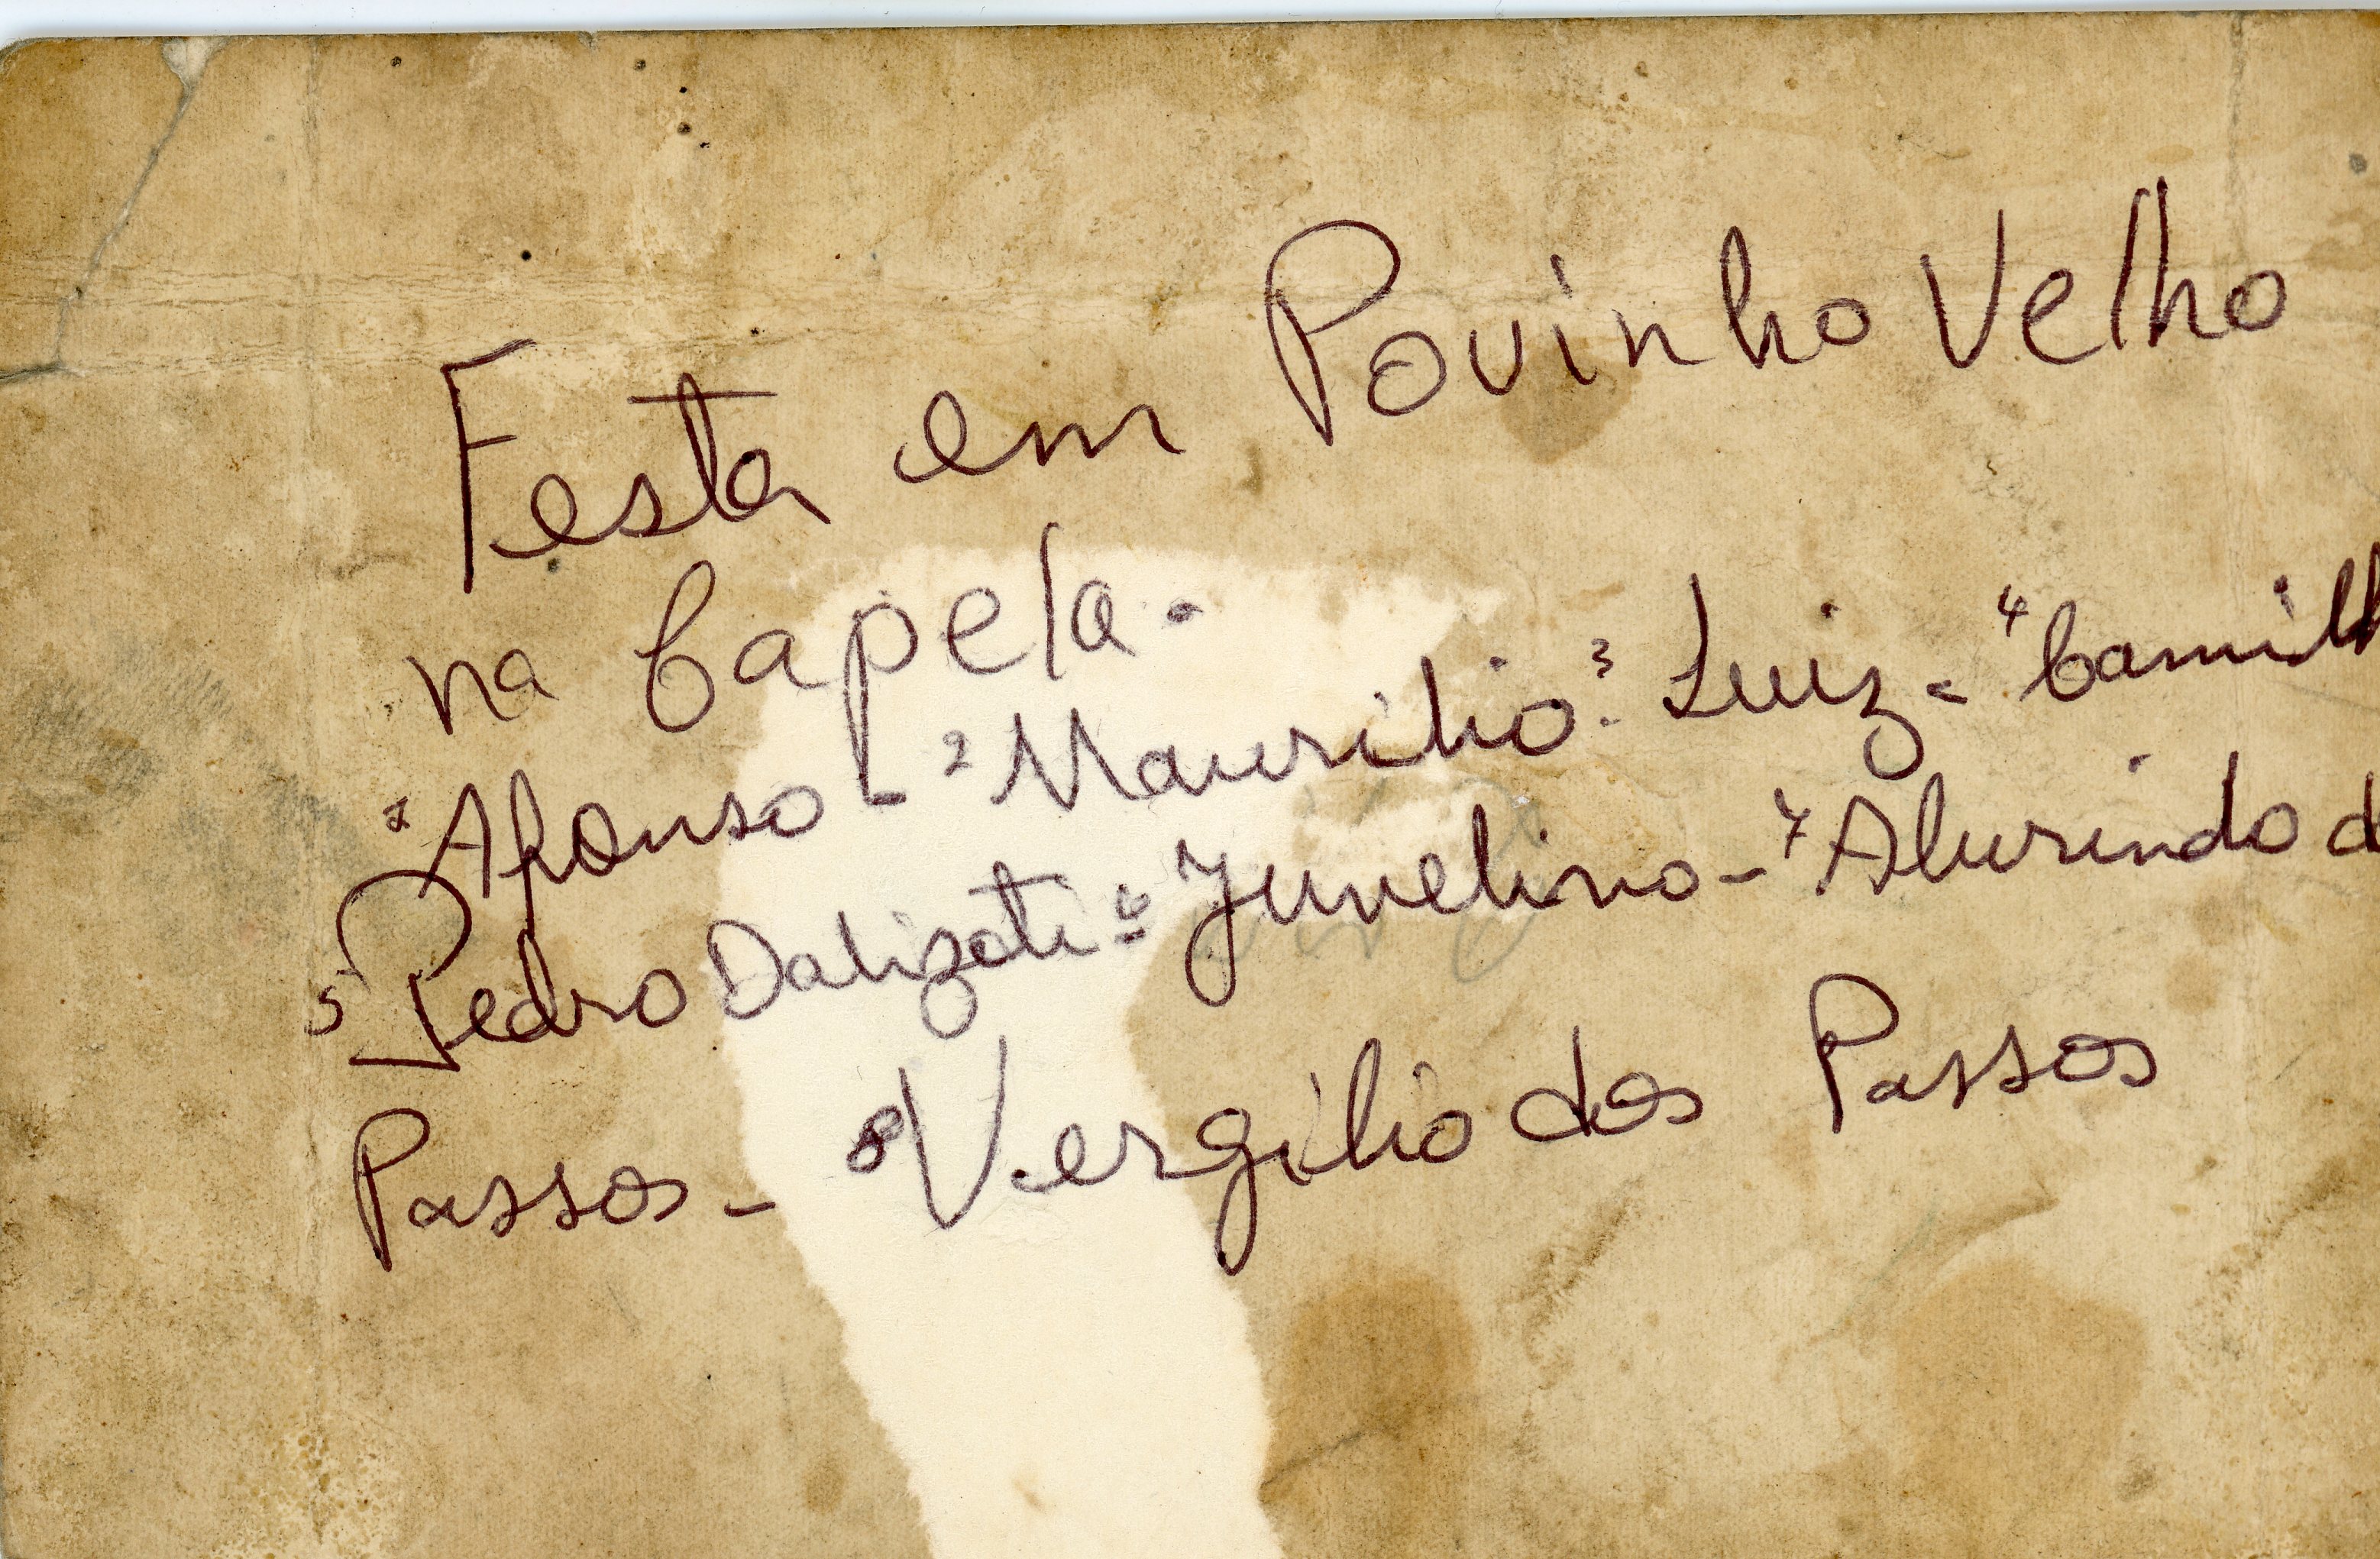 Festa em Povinho Velho
na Capela.
1 Afonso - 2 Maurilio - 3 Luiz - 4 Camilh
5 Pedro Dalizoti - 6 Juvelino - 7 Alurindo d
Passos - 8 Vergilio dos Passos